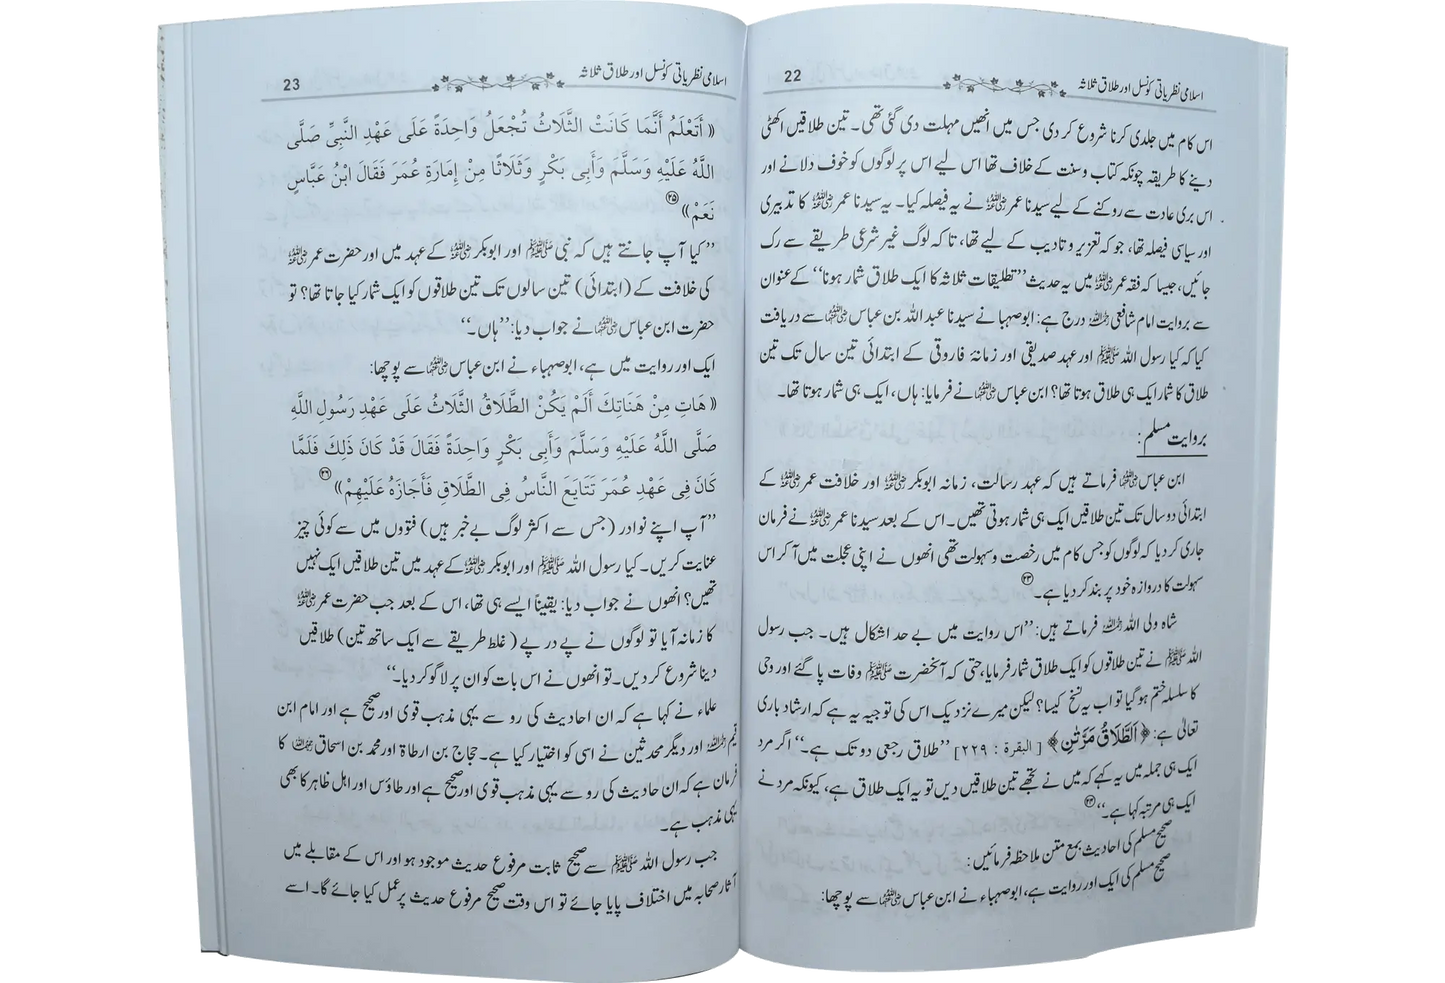 22 اسلامی نظریاتی کونسل اور طلاق ثلاثہ
اس کام میں جلدی کرنا شروع کر دی جس میں انھیں مہلت دی گئی تھی۔ تین طلاقیں اکٹھی
دینے کا طریقہ چونکہ کتاب و سنت کے خلاف تھا اس لیے اس پر لوگوں کو خوف دلانے اور
اس بری عادت سے روکنے کے لیے سیدنا عمر رضی اللہ عنہ نے یہ فیصلہ کیا۔ یہ سیدنا عمر رضی اللہ عنہ کا تدبیری
اور سیاسی فیصلہ تھا، جو کہ تعزیر و تادیب کے لیے تھا، تاکہ لوگ غیر شرعی طریقے سے رک
جائیں، جیسا کہ فقہ عمر رضی اللہ عنہ میں یہ حدیث ’’تطلیقات ثلاثہ کا ایک طلاق شمار ہونا‘‘ کے عنوان
سے بروایت امام شافعی رحمہ اللہ درج ہے: ابوصہبا نے سیدنا عبداللہ بن عباس رضی اللہ عنہما سے دریافت
کیا کہ کیا رسول اللہ ﷺ اور عہد صدیقی اور زمانۂ فاروقی کے ابتدائی تین سال تک تین
طلاق کا شمار ایک ہی طلاق ہوتا تھا؟ ابن عباس رضی اللہ عنہما نے فرمایا: ہاں، ایک ہی شمار ہوتا تھا۔
بروایت مسلم:
ابن عباس رضی اللہ عنہما فرماتے ہیں کہ عہد رسالت، زمانہ ابوبکر رضی اللہ عنہ اور خلافت عمر رضی اللہ عنہ کے
ابتدائی دو سال تک تین طلاقیں ایک ہی شمار ہوتی تھیں۔ اس کے بعد سیدنا عمر رضی اللہ عنہ نے فرمان
جاری کر دیا کہ لوگوں کو جس کام میں رخصت و سہولت تھی انھوں نے اپنی عجلت میں آ کر اس
سہولت کا دروازہ خود پر بند کر دیا ہے۔ ۲۳
شاہ ولی اللہ رحمہ اللہ فرماتے ہیں: ’’اس روایت میں بے حد اشکال ہیں۔ جب رسول
اللہ ﷺ نے تین طلاقوں کو ایک طلاق شمار فرمایا، حتی کہ آنحضرت ﷺ وفات پا گئے اور وحی
کا سلسلہ ختم ہو گیا تو اب یہ نسخ کیسا؟ لیکن میرے نزدیک اس کی توجیہ یہ ہے کہ ارشاد باری
تعالیٰ ہے: ﴿اَلطَّلَاقُ مَرَّتٰنِ﴾ [البقرة : ۲۲۹] ’’طلاق رجعی دو تک ہے۔‘‘ اگر مرد
ایک ہی جملہ میں یہ کہے کہ میں نے تجھے تین طلاقیں دیں تو یہ ایک طلاق ہے، کیونکہ مرد نے
ایک ہی مرتبہ کہا ہے۔‘‘ ۲۴
صحیح مسلم کی احادیث بمع متن ملاحظہ فرمائیں:
صحیح مسلم کی ایک اور روایت ہے، ابوصہباء نے ابن عباس رضی اللہ عنہما سے پوچھا:
23 اسلامی نظریاتی کونسل اور طلاق ثلاثہ
« أَتَعْلَمُ أَنَّمَا كَانَتْ الثَّلَاثُ تُجْعَلُ وَاحِدَةً عَلَى عَهْدِ النَّبِيِّ صَلَّى
اللَّهُ عَلَيْهِ وَسَلَّمَ وَأَبِى بَكْرٍ وَثَلَاثًا مِنْ إِمَارَةِ عُمَرَ فَقَالَ ابْنُ عَبَّاسٍ
نَعَمْ» ۲۵
’’کیا آپ جانتے ہیں کہ نبی ﷺ اور ابوبکر رضی اللہ عنہ کے عہد میں اور حضرت عمر رضی اللہ عنہ
کی خلافت کے (ابتدائی) تین سالوں تک تین طلاقوں کو ایک شمار کیا جاتا تھا؟ تو
حضرت ابن عباس رضی اللہ عنہما نے جواب دیا: ’’ہاں۔‘‘
ایک اور روایت میں ہے، ابوصہباء نے ابن عباس رضی اللہ عنہما سے پوچھا:
« هَاتِ مِنْ هَنَاتِكَ أَلَمْ يَكُنْ الطَّلَاقُ الثَّلَاثُ عَلَى عَهْدِ رَسُولِ اللَّهِ
صَلَّى اللَّهُ عَلَيْهِ وَسَلَّمَ وَأَبِى بَكْرٍ وَاحِدَةً فَقَالَ قَدْ كَانَ ذَلِكَ فَلَمَّا
كَانَ فِى عَهْدِ عُمَرَ تَتَايَعَ النَّاسُ فِى الطَّلَاقِ فَأَجَازَهُ عَلَيْهِمْ» ۲۶
’’آپ اپنے نوادر (جس سے اکثر لوگ بے خبر ہیں) فتوں میں سے کوئی چیز
عنایت کریں۔ کیا رسول اللہ ﷺ اور ابوبکر رضی اللہ عنہ کے عہد میں تین طلاقیں ایک نہیں
تھیں؟ انھوں نے جواب دیا: یقیناً ایسے ہی تھا، اس کے بعد جب حضرت عمر رضی اللہ عنہ
کا زمانہ آیا تو لوگوں نے پے در پے (غلط طریقے سے ایک ساتھ تین) طلاقیں
دینا شروع کر دیں۔ تو انھوں نے اس بات کو ان پر لاگو کر دیا۔‘‘
علماء نے کہا ہے کہ ان احادیث کی رو سے یہی مذہب قوی اور صحیح ہے اور امام ابن
قیم رحمہ اللہ اور دیگر محدثین نے اسی کو اختیار کیا ہے۔ حجاج بن ارطاۃ اور محمد بن اسحاق کا
فرمان ہے کہ ان حادیث کی رو سے یہی مذہب قوی اور صحیح ہے اور طاؤس اور اہل ظاہر کا بھی
یہی مذہب ہے۔
جب رسول اللہ ﷺ سے صحیح ثابت مرفوع حدیث موجود ہو اور اس کے مقابلے میں
آثار صحابہ میں اختلاف پایا جائے تو اس وقت صحیح مرفوع حدیث پر عمل کیا جائے گا۔ اسے